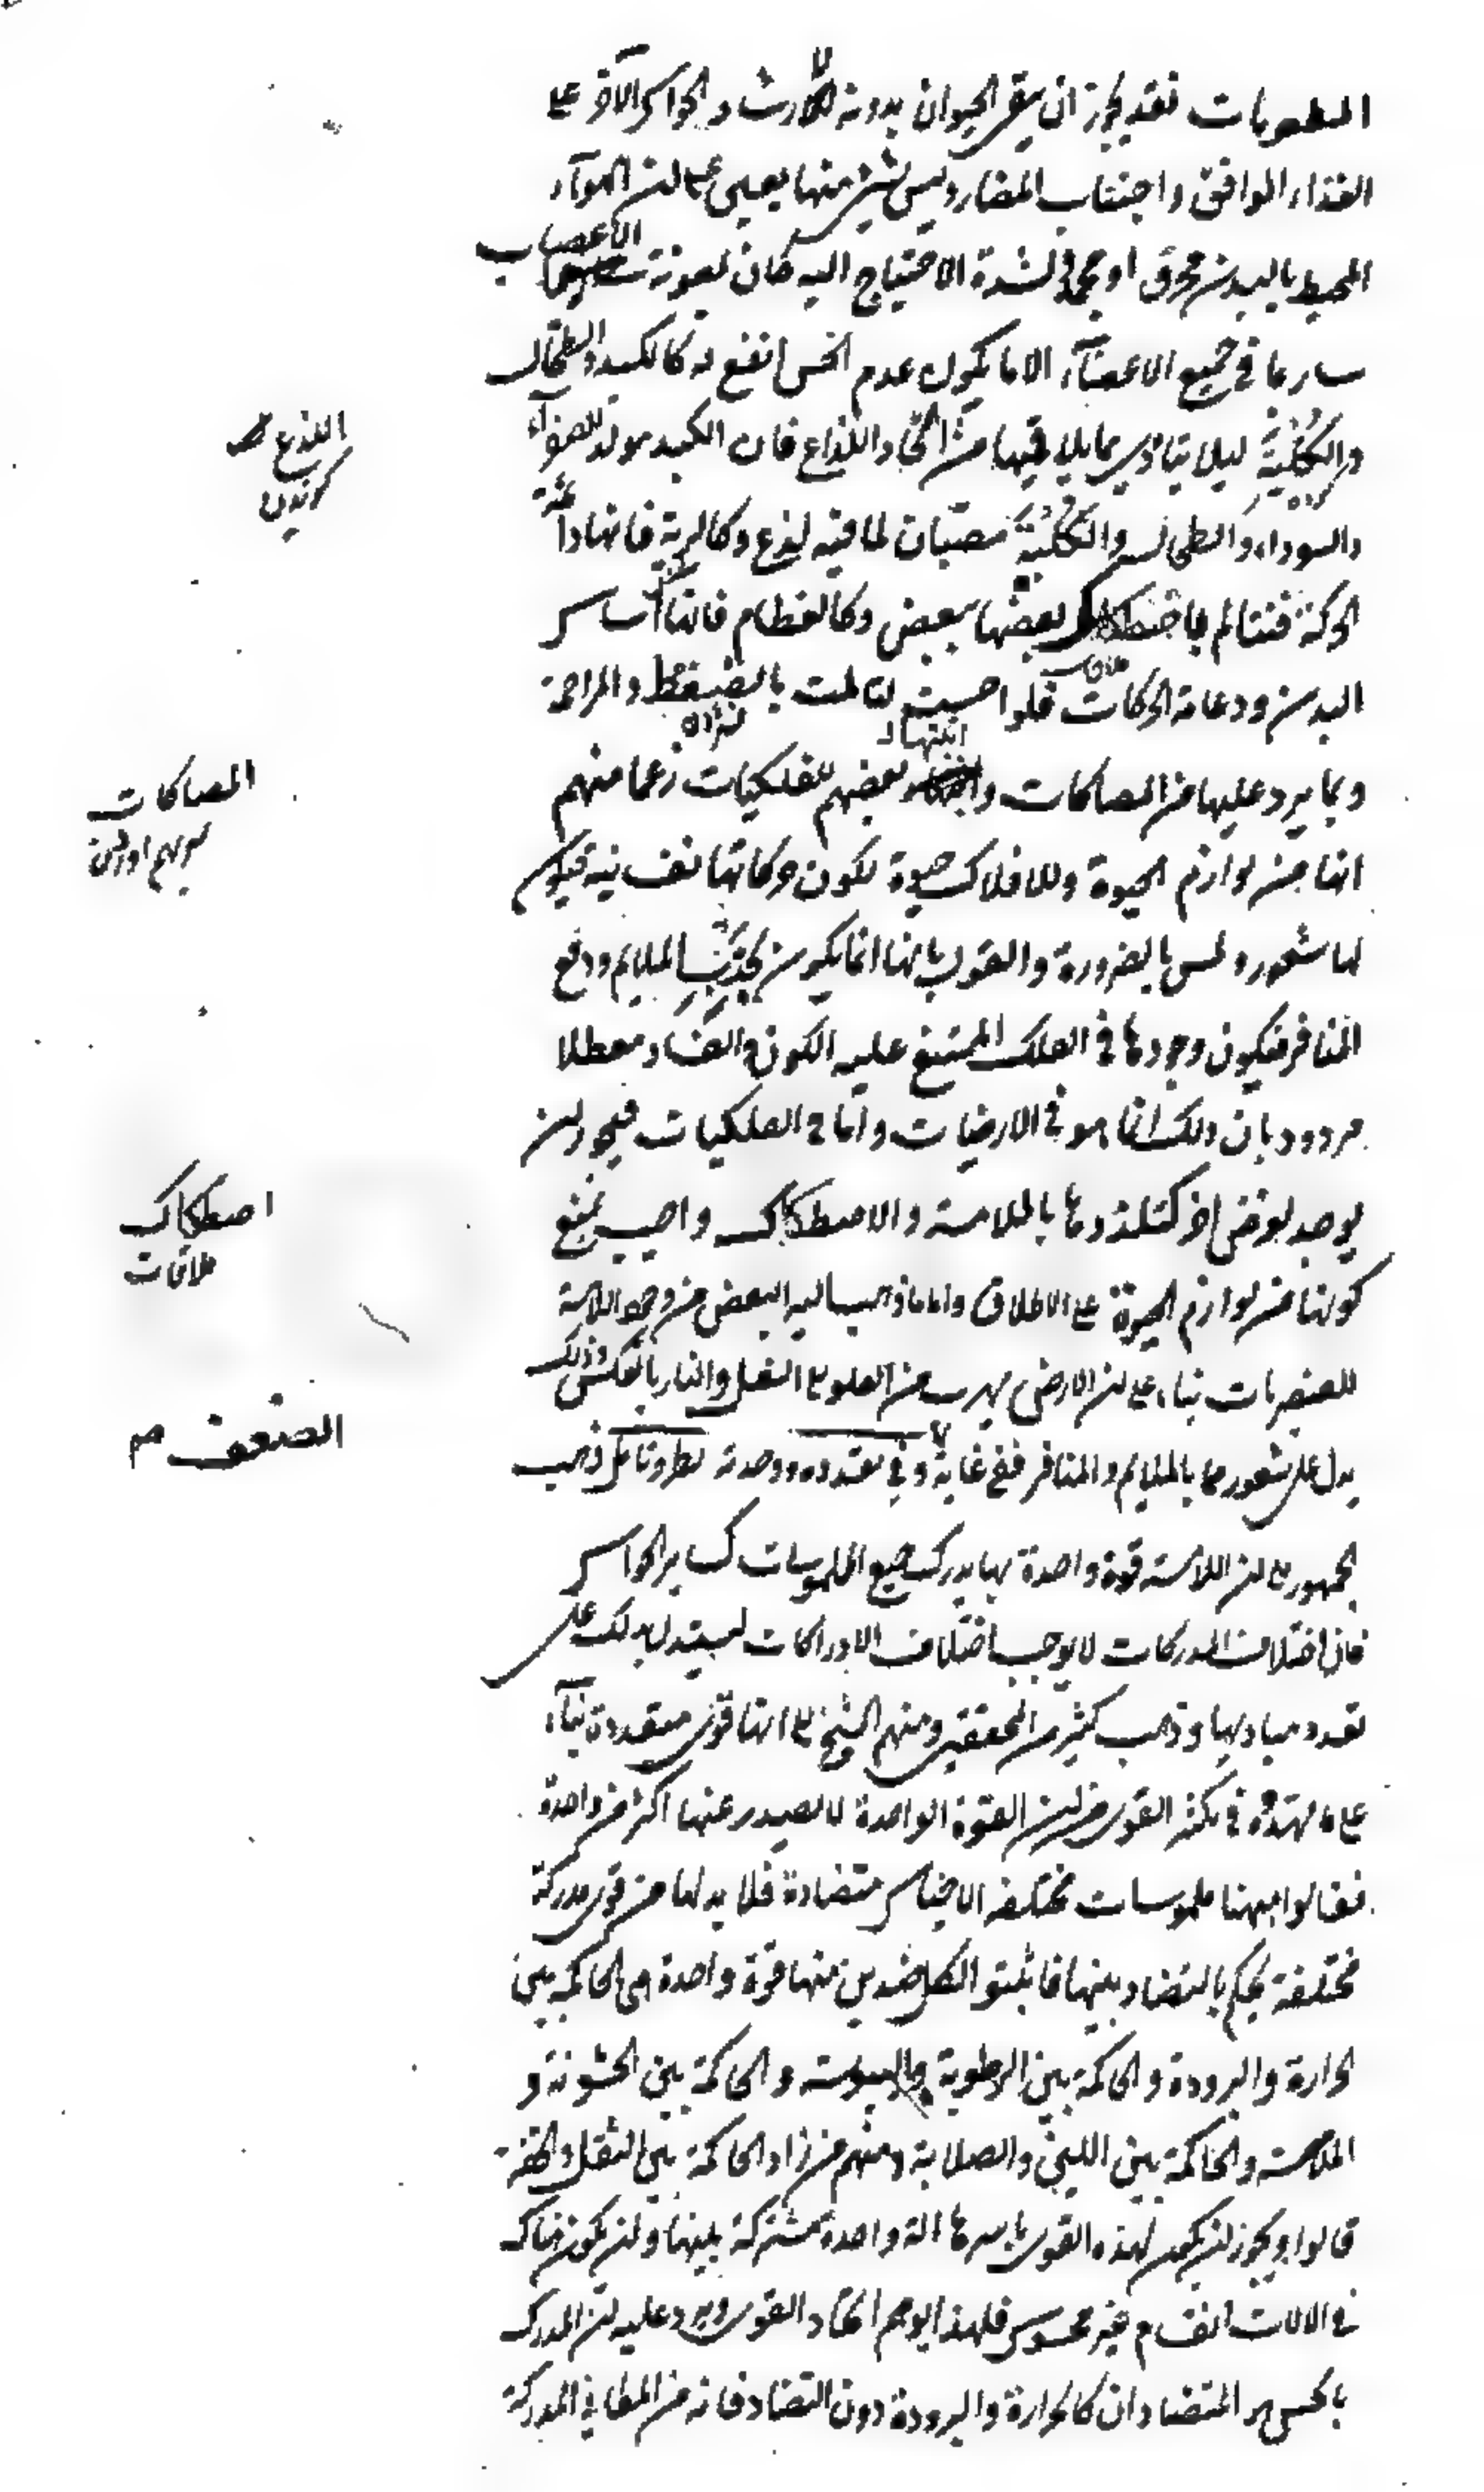 المطعومات فقد يجوز ان يبقى الحيوان بدونه لارشاد الحواس الآخر على
الغذاء الموافق واجتناب المضار وليس شئ منها يعين على ان الهوآء
المحيط بالبدن محرق او مجمد فلشدة الاحتياج اليه كان بمعونة الأعصاب
ساريا في جميع الاعضآء الا ما يكون عدم الحس انفع له كالكبد والطحال
والكلية ليلا يتأذى بما يلاقيها من الحاد اللذاع فان الكبد مولد للصفرآء
والسوداء والطحال والكلية مصبّان لما فيه لذع وكالرية فانها دائمة
الحركة فتتالم باصطكاك بعضها ببعض وكالعظام فانها اساس
البدن ودعامة الحركات فلو احسّت لتالمت بالضغط والمزاحمة
وبما يرد عليها من المصاكات واثبتها بعضهم للفلكيات زعما منهم
انها من لوازم الحيوة وللافلاك حيوة لكون حركاتها نفسانية فيكون
لها شعور ولمس بالضرورة والقول بانها انما يكون لجذب الملايم ودفع
المنافر فيكون وجودها في الفلك الممتنع عليه الكون والفساد معطلا
مردود بان ذلك انما هو في الارضيات واما في الفلكيات فيجوز ان
يوجد لغرض اخر كتلذذها بالملامسة والاصطكاك واجيب بمنع
كونها من لوازم الحيوة على الاطلاق واما ما ذهب اليه البعض من وجود اللامسة
للعنصريات بناء على ان الارض يهرب من العلو الى السفل والنار بالعكس وذلك
يدل على شعورها بالملايم والمنافر ففي غاية وفي تعدده ووحدته نظر وتأمل ذهب
الجمهور الى ان اللامسة قوة واحدة بها يدرك جميع الملموسات كساير الحواس
فان اختلاف المدركات لا يوجب اختلاف الادراكات ليستدل بذلك على
تعدد مباديها وذهب كثير من المحققين ومنهم الشيخ الى انها قوى متعددة بنآء
على ما مهدّوه في تكثر القوى من ان القوة الواحدة لا يصدر عنها اكثر من واحدة
فقالوا ههنا ملموسات مختلفه الاجناس متضادة فلا بد لها من قوى مدركة
مختلفة يحكم بالتضاد بينها فاثبتوا لكل ضدين منها قوة واحدة هي الحاكمة بين
الحرارة والبرودة والحاكمة بين الرطوبة واليبوسة والحاكمة بين الخشونة و
الملاسة والحاكمة بين اللين والصلابة ومنهم من زاد الحاكمة بين الثقل والخفة
قالوا ويجوز ان يكون لهذه القوى باسرها الة واحدة مشتركة بينها وان يكون هناك
في الالات انقسام غير محسوس فلهذا يوهم اتحاد القوى ويرد عليه ان المدرك
بالحس هو المتضادان كالحرارة والبرودة دون التضاد فانه من المعاني المدركة
اللذع
المصاكات
اصطكاك
ملاقات
الضعف